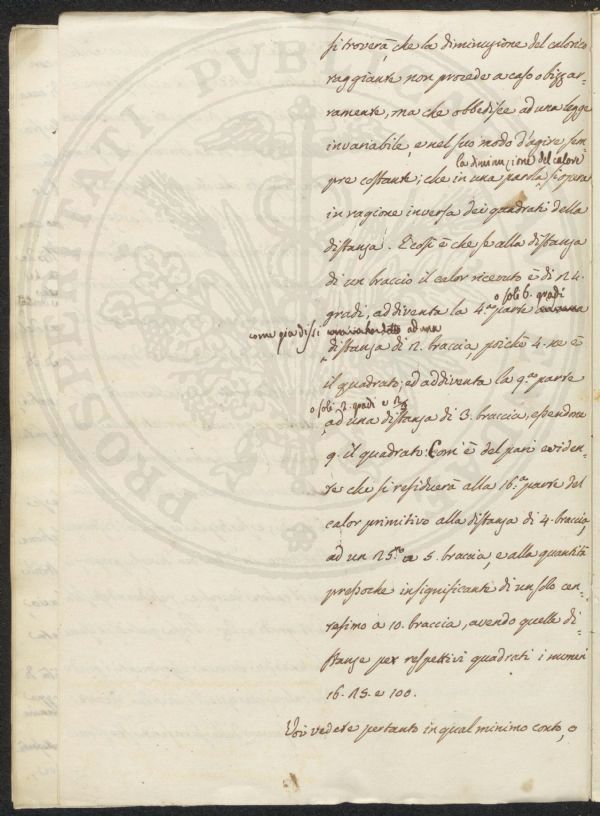 PROSPERITATI PVBLICAE
si troverà che la diminuzione del calorico
raggiante non procede a caso o bizzar-
ramente, ma che obbedisce ad una legge
invariabile, e nel suo modo d'agire sem-
la diminuzione del calore
pre costante; che in una parola, si opera
in ragione inversa dei quadrati della
distanza. E così è che se alla distanza
di un braccio il calor ricevuto è di 24.
o soli 6. gradi
gradi, addiventa la 4.ª parte
come già dissi ad una
distanza di 2. braccia, poichè 4. ne è
il quadrato; ed addiventa la 9.ª parte
o soli 2. gradi e 2/3
ad una distanza di 3. braccia, essendone
9. il quadrato. Com'è del pari eviden-
te che si residuerà alla 16.ª parte del
calor primitivo alla distanza di 4. braccia,
ad un 25.mo a 5. braccia, e alla quantità
pressoche insignificante di un solo cen-
tesimo a 10. braccia, avendo quelle di-
stanze per respettivi quadrati i numeri
16. 25. e 100.
Voi vedete pertanto in qual minimo conto, o